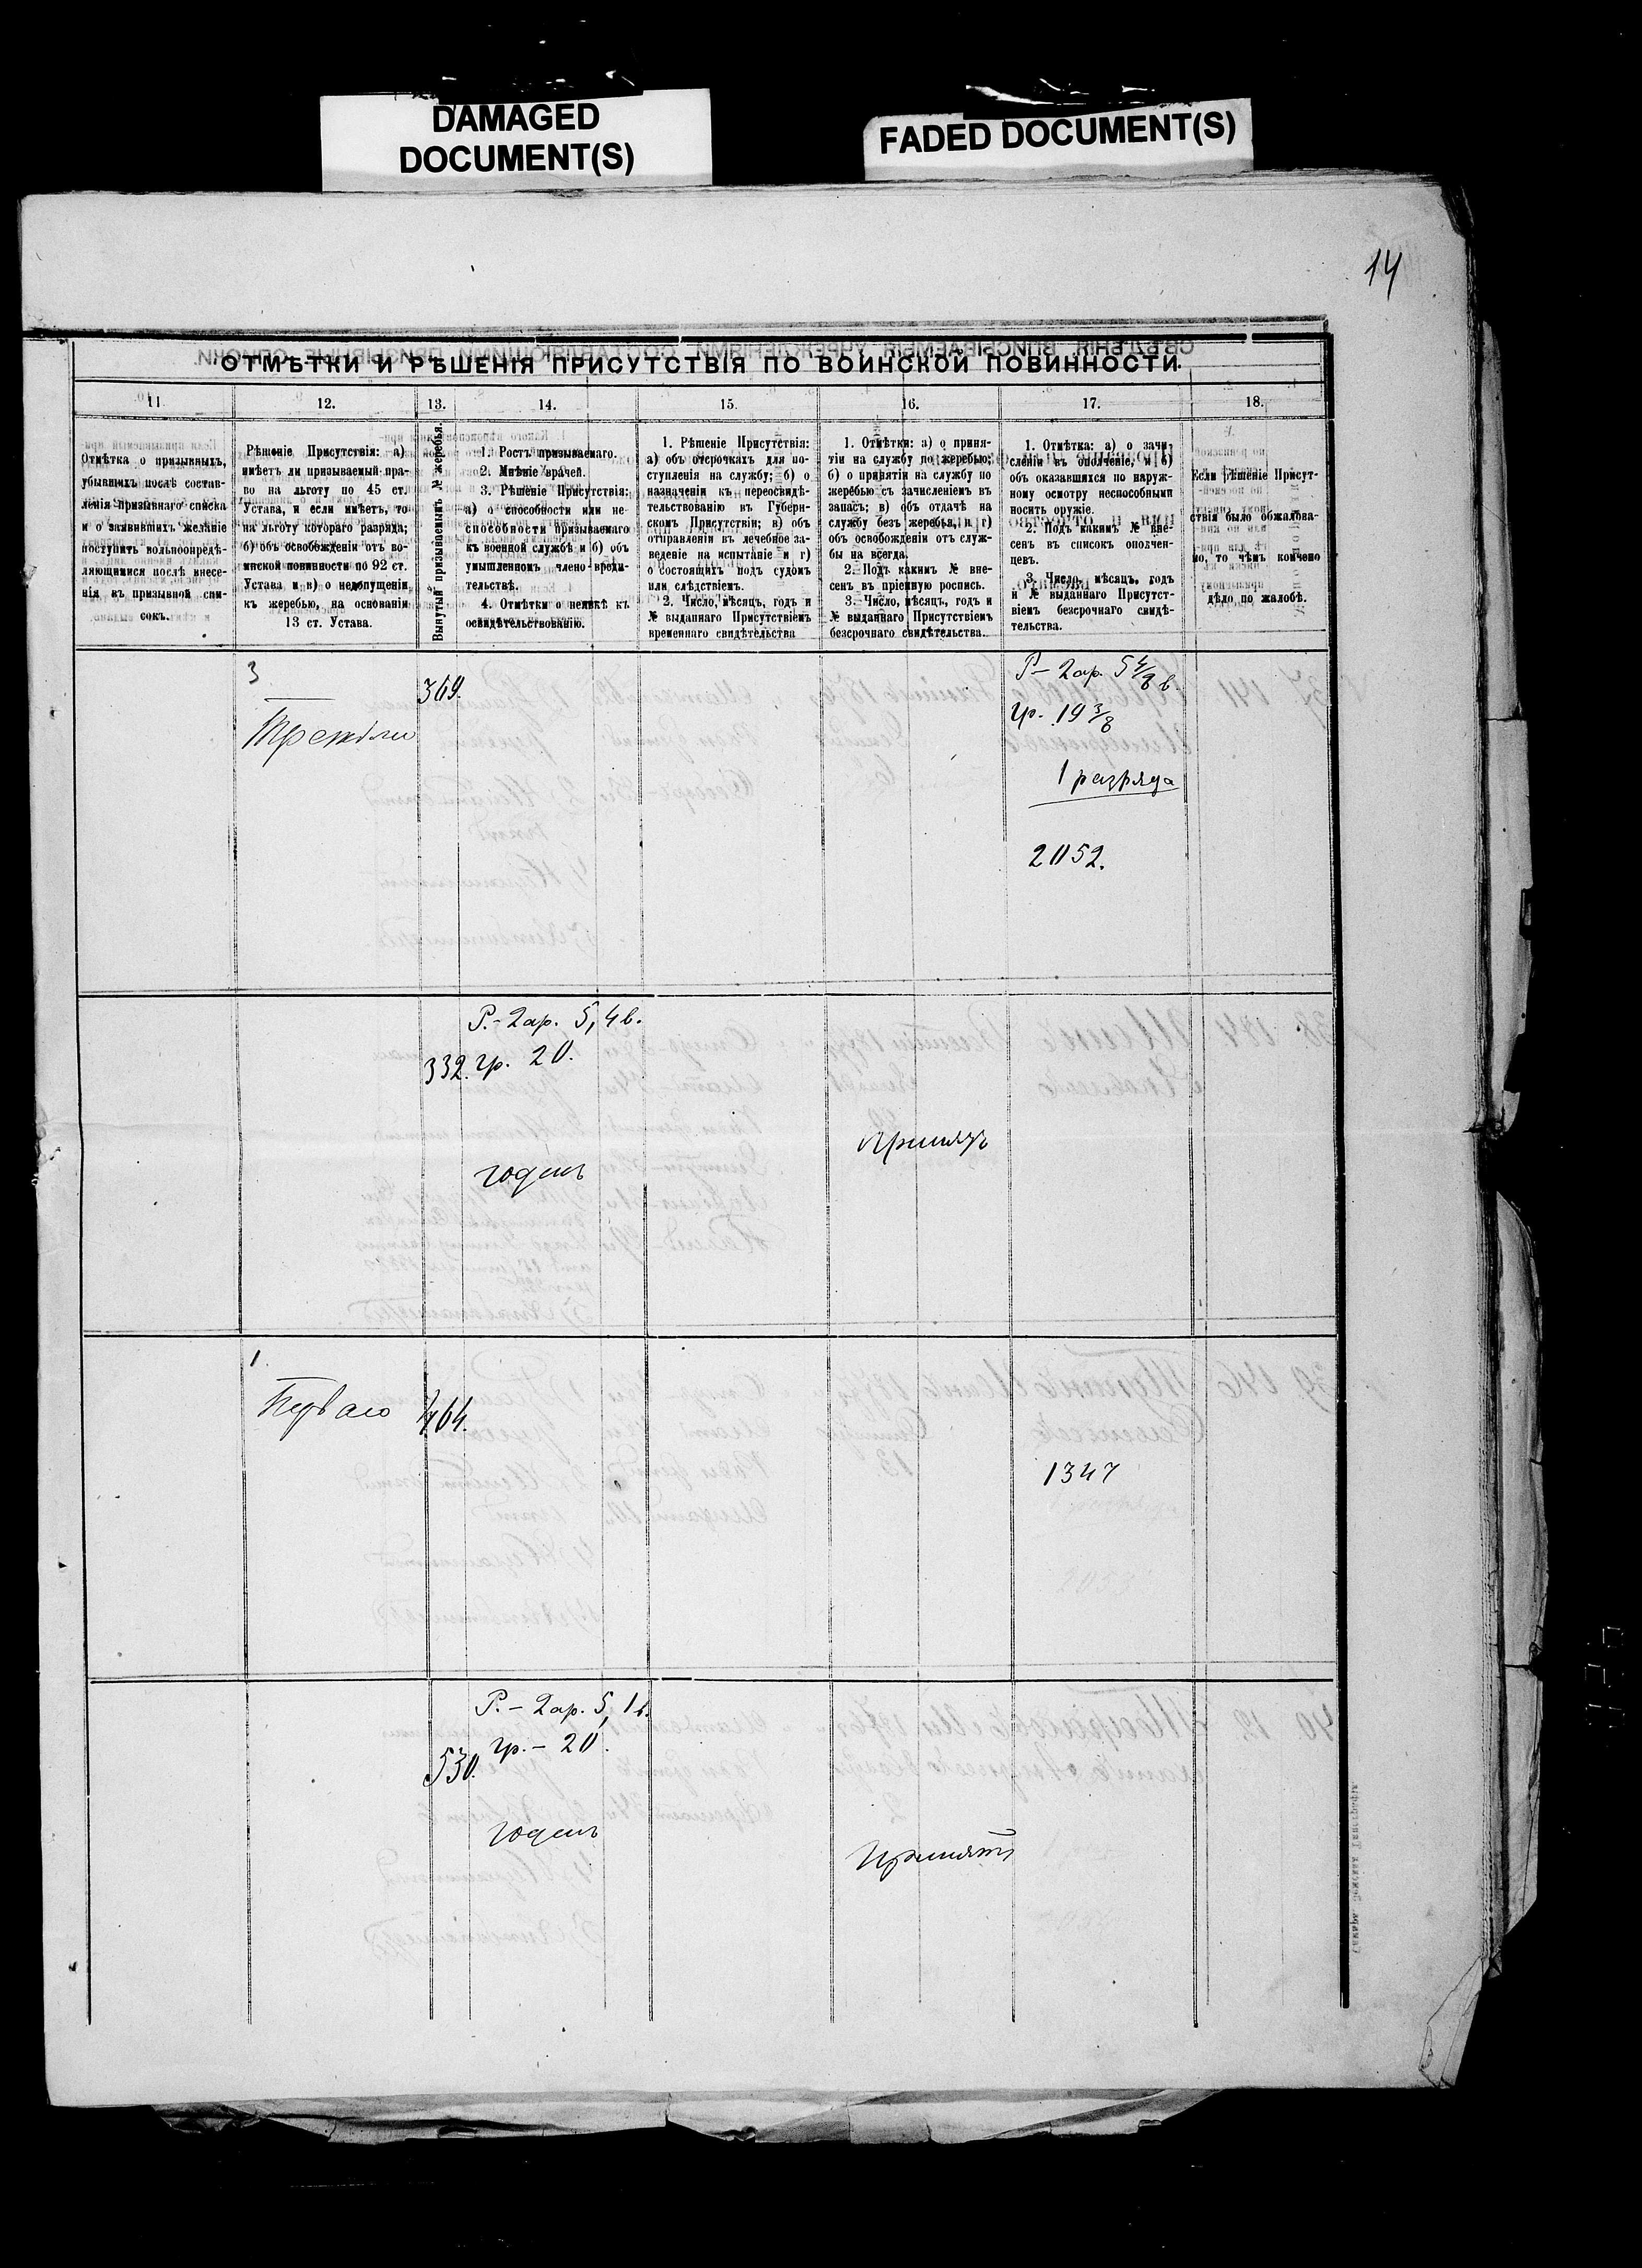 DAMAGED
DOCUMENT(S)
FADED DOCUMENT(S)
14
ОТМѢТКИ И РѢШЕНІЯ ПРИСУТСТВІЯ ПО ВОИНСКОЙ ПОВИННОСТИ.
11.
12.
13.
14.
15.
16.
17.
18.
Отмѣтка о призывныхъ,
убывшихъ послѣ состав-
ленія призывнаго списка
и о заявившихъ желаніе
поступить вольноопредѣ-
ляющимися послѣ внесе-
нія въ призывной спи-
сокъ.
Рѣшеніе Присутствія: а)
имѣетъ ли призываемый пра-
во на льготу по 45 ст.
Устава, и если имѣетъ, то
на льготу котораго разряда;
б) объ освобожденіи отъ во-
инской повинности по 92 ст.
Устава и в) о недопущеніи
къ жеребью, на основаніи
13 ст. Устава.
Вынутый призываемымъ № жеребья.
1. Ростъ призываемаго.
2. Мнѣніе врачей.
3. Рѣшеніе Присутствія:
а) о способности или не-
способности призываемаго
къ военной службѣ и б) объ
умышленномъ члено-вреди-
тельствѣ.
4. Отмѣтки о неявкѣ къ
освидѣтельствованію.
1. Рѣшеніе Присутствія:
а) объ отсрочкахъ для по-
ступленія на службу; б) о
назначеніи къ переосвидѣ-
тельствованію въ Губерн-
скомъ Присутствіи; в) объ
отправленіи въ лечебное за-
веденіе на испытаніе и г)
о состоящихъ подъ судомъ
или слѣдствіемъ.
2. Число, мѣсяцъ, годъ и
№ выданнаго Присутствіемъ
временнаго свидѣтельства
1. Отмѣтки: а) о приня-
тіи на службу по жеребью;
б) о принятіи на службу по
жеребью съ зачисленіемъ въ
запасъ; в) объ отдачѣ на
службу безъ жеребья, и г)
объ освобожденіи отъ служ-
бы на всегда.
2. Подъ какимъ № вне-
сенъ въ пріемную роспись.
3. Число, мѣсяцъ, годъ и
№ выданнаго Присутствіемъ
безсрочнаго свидѣтельства.
1. Отмѣтка: а) о зачи-
сленіи въ ополченіе, и б)
объ оказавшихся по наруж-
ному осмотру неспособными
носить оружіе.
2. Подъ какимъ № вне-
сенъ въ списокъ ополчен-
цевъ.
3. Число, мѣсяцъ, годъ
и № выданнаго Присутст-
віемъ безсрочнаго свидѣ-
тельства.
Если рѣшеніе Присут-
ствія было обжалова-
но, то чѣмъ кончено
дѣло по жалобѣ.
3
369.
Р- 2ар. 5 4/8 в.
гр. 19 3/8
1 разряда
2052.
Р.- 2ар. 5,4в.
332. гр. 20.
годенъ
Принятъ
1.
Перваго
464.
1347
Р.- 2ар. 5,1в.
530. гр. - 20.
годенъ
Принятъ
Самара. Земская Типографія.